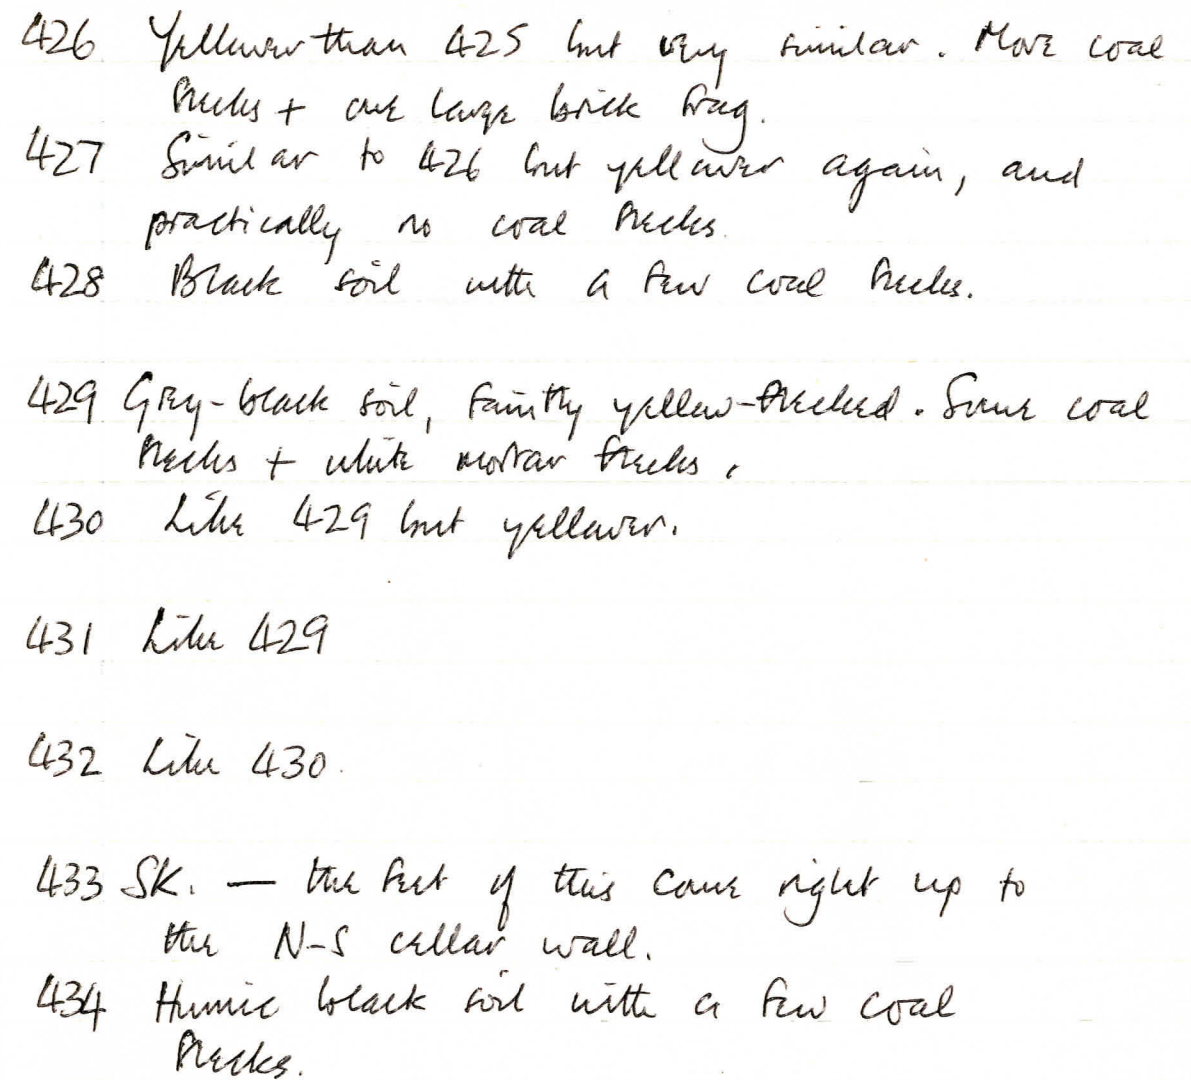 426 Yellower than 425 but very similar. More coal
flecks + one large brick frag.
427 Similar to 426 but yellower again, and
practically no coal flecks.
428 Black soil with a few coal flecks.
429 Grey-black soil, faintly yellow-flecked. Some coal
flecks + white mortar flecks.
430 Like 429 but yellower.
431 Like 429
432 Like 430.
433 SK. — the feet of this come right up to
the N-S cellar wall.
434 Humic black soil with a few coal
flecks.